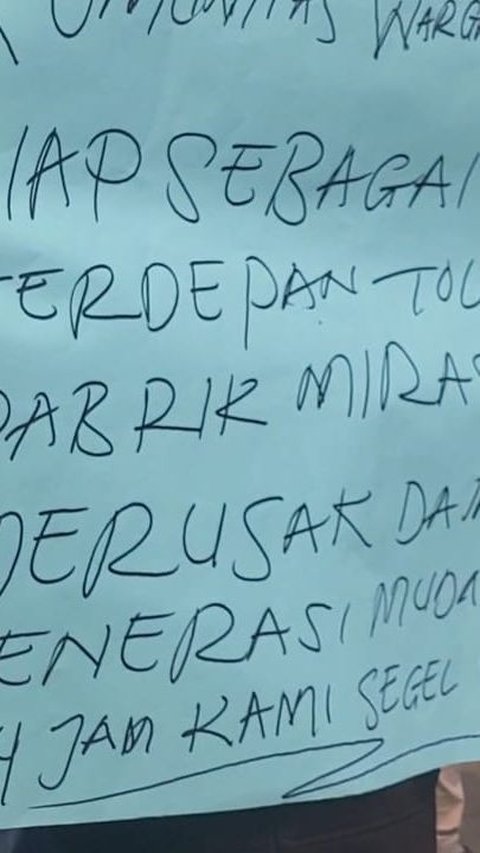 KOMUNITAS WARGA
IAP SEBAGAI
TERDEPAN TOL
PABRIK MIRAS
PERUSAK DA
ENERASI MUDA
4 JAM KAMI SEGEL